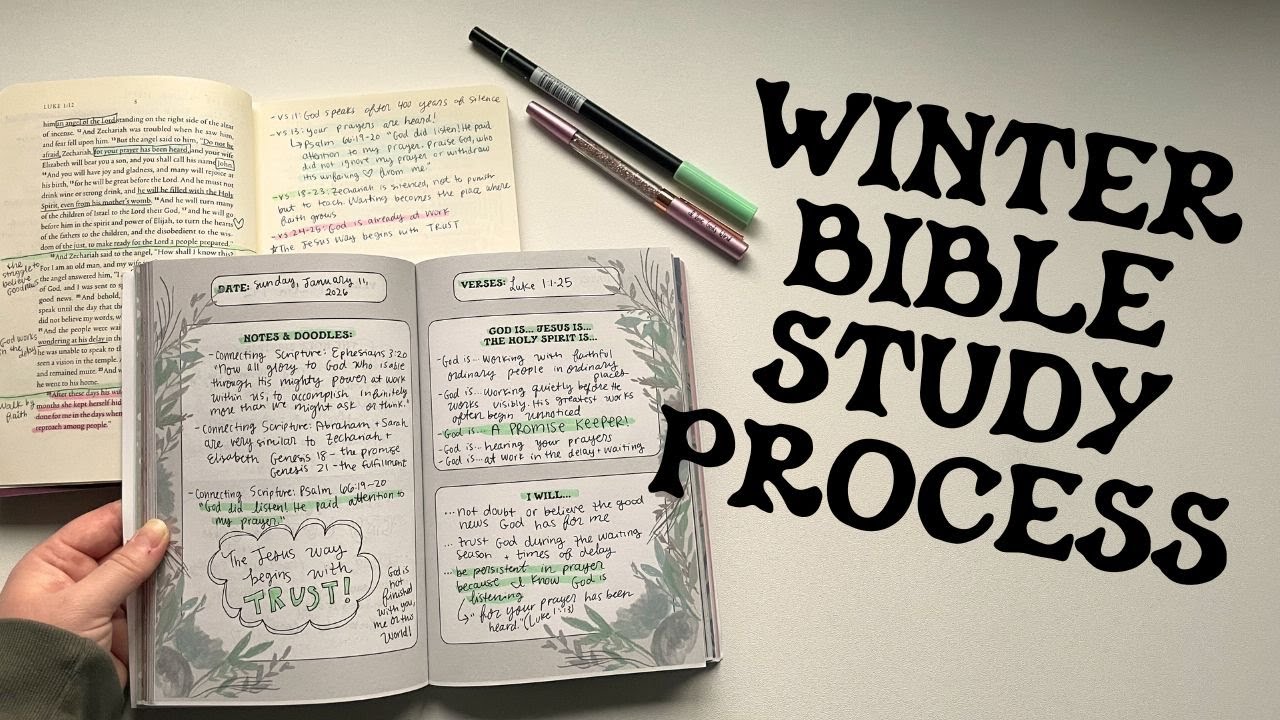 LUKE 1:12
5
him an angel of the Lord standing on the right side of the altar
of incense. 12 And Zechariah was troubled when he saw him,
and fear fell upon him. 13 But the angel said to him, "Do not be
afraid, Zechariah, for your prayer has been heard, and your wife
Elizabeth will bear you a son, and you shall call his name John.
14 And you will have joy and gladness, and many will rejoice at
his birth, 15 for he will be great before the Lord. And he must not
drink wine or strong drink, and he will be filled with the Holy
Spirit, even from his mother's womb. 16 And he will turn many
of the children of Israel to the Lord their God, 17 and he will go
before him in the spirit and power of Elijah, to turn the hearts
of the fathers to the children, and the disobedient to the wis-
dom of the just, to make ready for the Lord a people prepared."
18 And Zechariah said to the angel, "How shall I know this?
For I am an old man, and my wife
the angel answered him, "I
of God, and I was sent to
good news. 20 And behold,
speak until the day that
did not believe my words,
21 And the people were wai
wondering at his delay in
he was unable to speak to
seen a vision in the temple.
remained mute. 23 And
he went to his home.
24 After these days his wi
months she kept herself hid
done for me in the days when
reproach among people."
the
struggle to
believe
good news
God works
in the delay
walk by
faith
-vs 11: God speaks after 400 years of silence
-vs 13: your prayers are heard!
↳ Psalm 66:19-20 "God did listen! He paid
attention to my prayer. Praise God, who
did not ignore my prayer or withdraw
His unfailing ♡ from me"
-vs 18-23: Zechariah is silenced, not to punish
but to teach. Waiting becomes the place where
faith grows
-vs 24-25: God is already at work
*The Jesus way begins with TRUST
DATE: Sunday, January 11,
2026
NOTES & DOODLES:
-Connecting Scripture: Ephesians 3:20
"Now all glory to God who is able
through His mighty power at work
within us, to accomplish infinitely
more than we might ask or think."
-Connecting Scripture: Abraham + Sarah
are very similar to Zechariah +
Elizabeth Genesis 18 - the promise
Genesis 21 - the fulfillment
-Connecting Scripture: Psalm 66:19-20
"God did listen! He paid attention to
my prayer."
The Jesus way
begins with
TRUST!
God is
not
finished
with you,
me or the
world!
VERSES: Luke 1:1-25
GOD IS... JESUS IS...
THE HOLY SPIRIT IS...
-God is... working with faithful
ordinary people in ordinary
places
-God is... working quietly before He
works visibly. His greatest works
often begin unnoticed
-God is... A PROMISE KEEPER!
-God is... hearing your prayers
-God is... at work in the delay + waiting
I WILL...
... not doubt or believe the good
news God has for me
... trust God during the waiting
season + times of delay
... be persistent in prayer
because I know God is
listening
↳ "for your prayer has been
heard." (Luke 1:13)
WINTER
BIBLE
STUDY
PROCESS